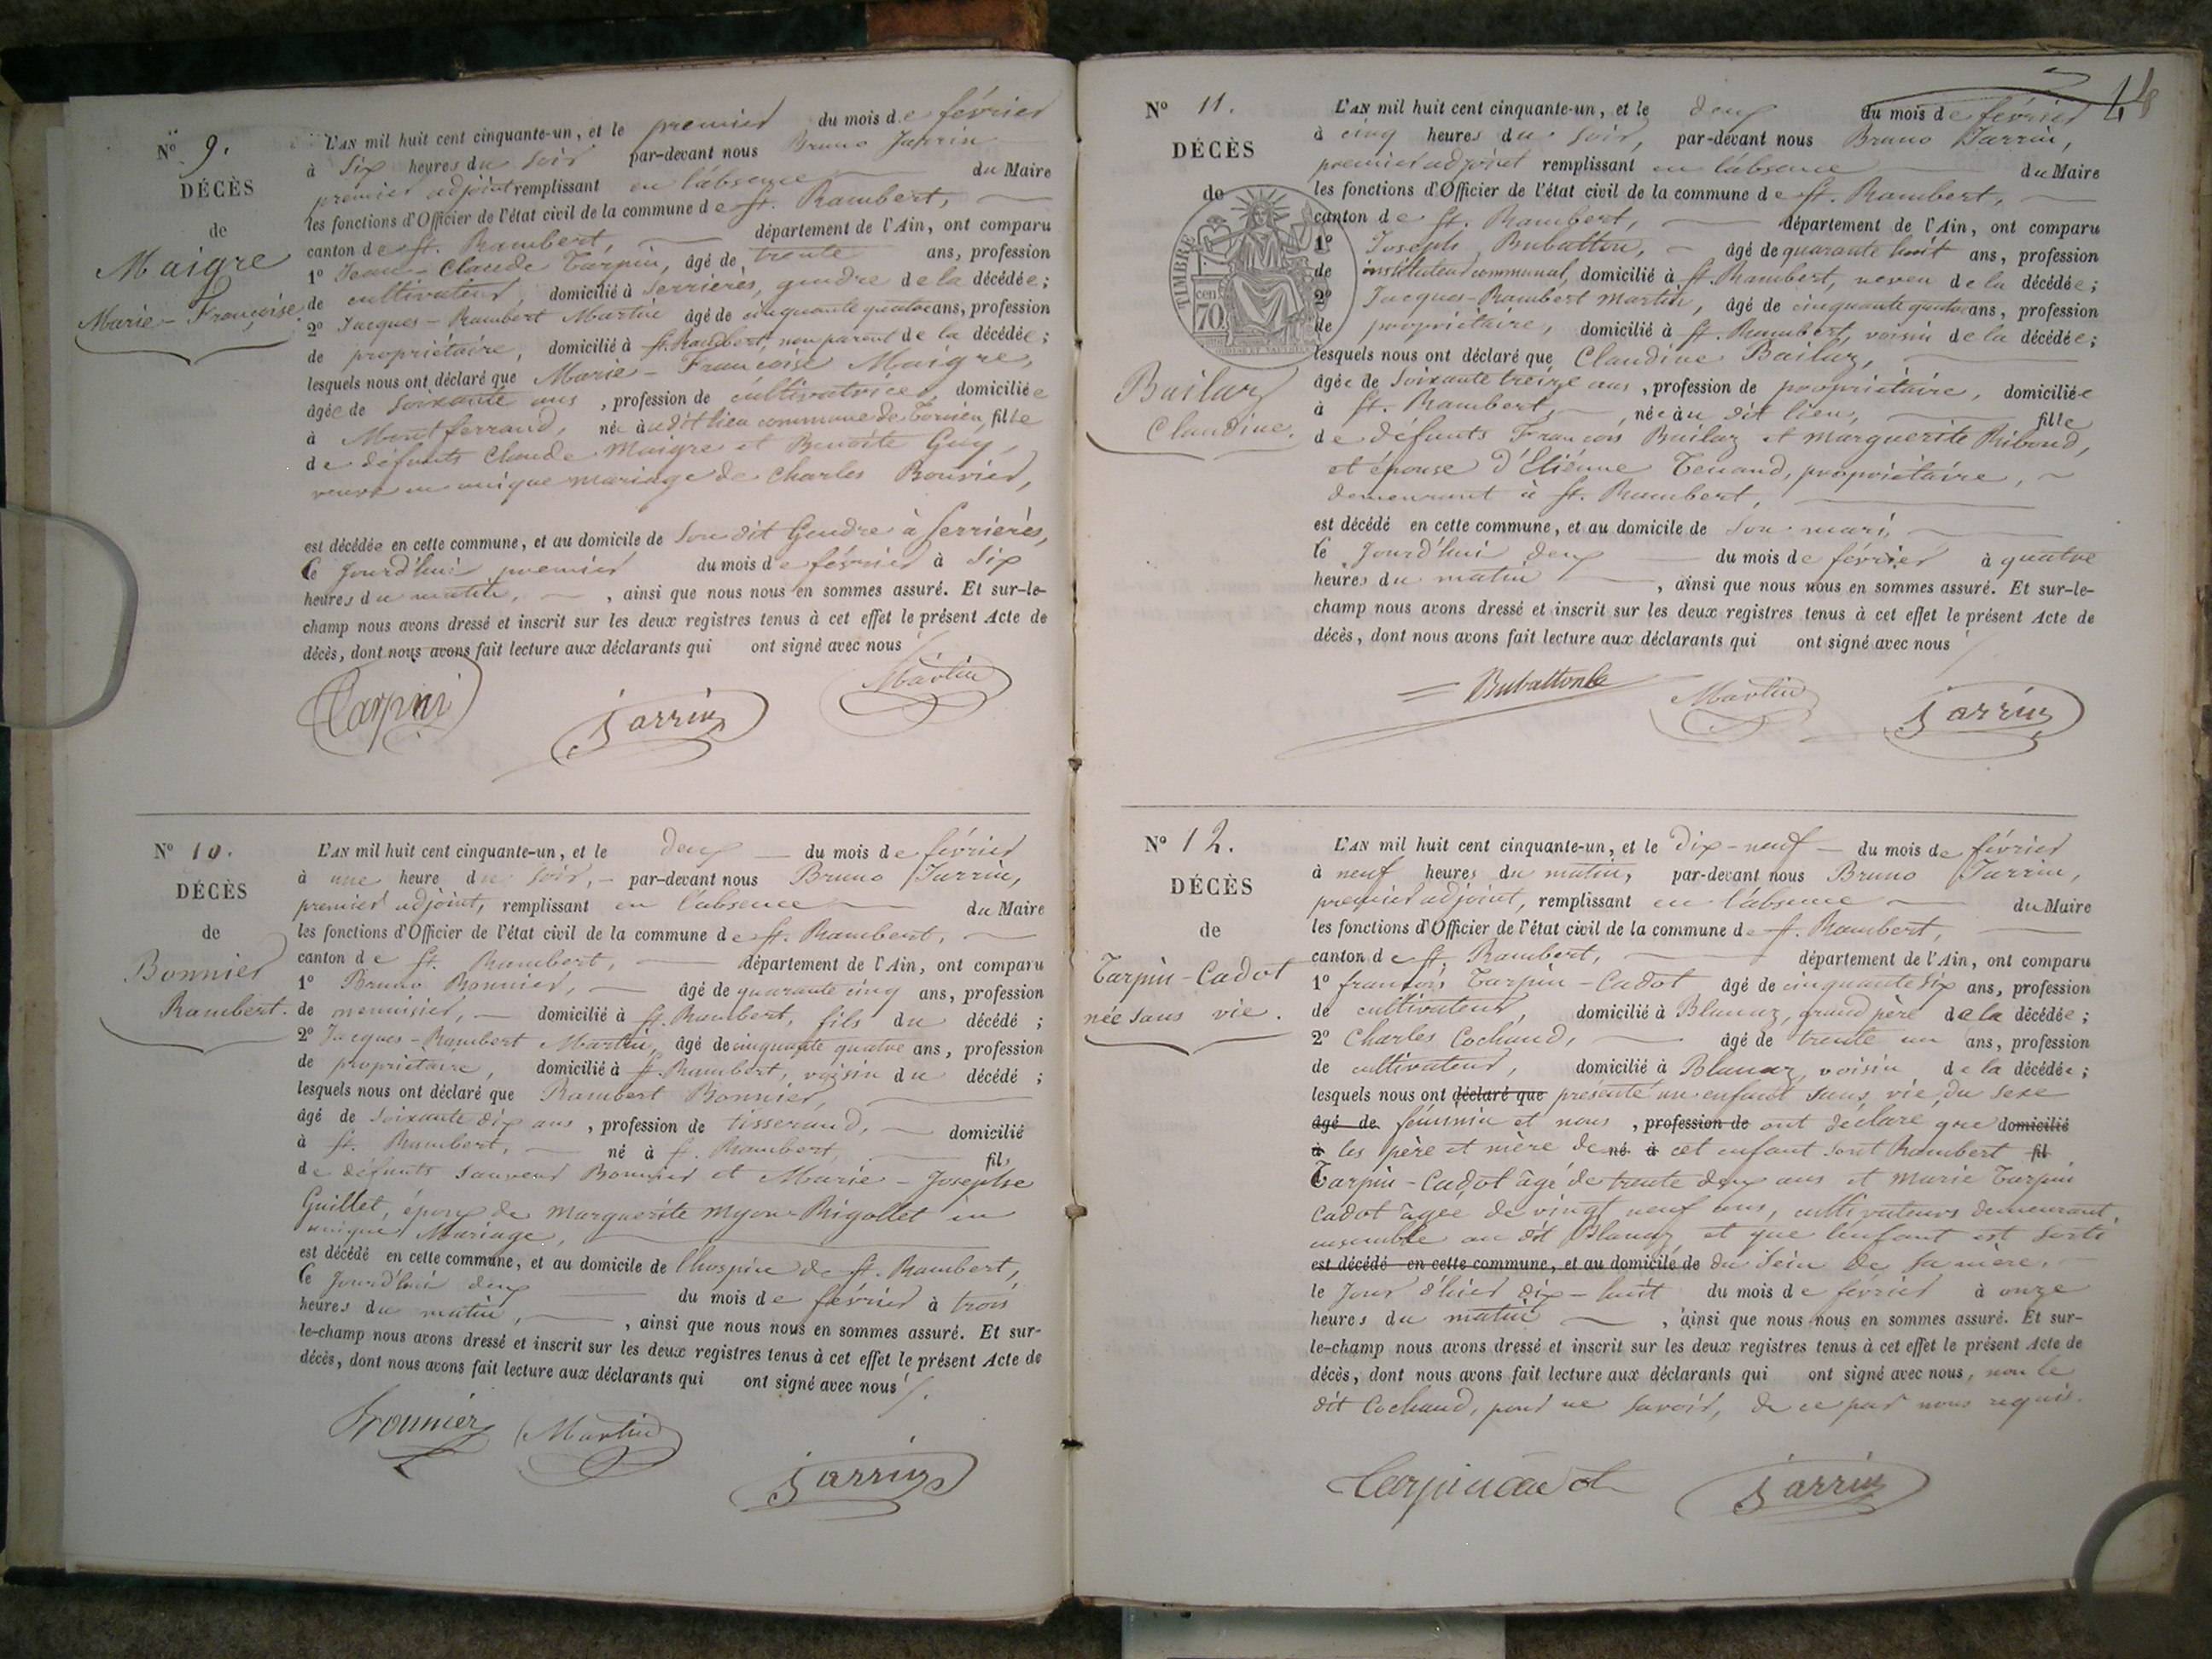 Nº 9.
DÉCÈS
de
Maigre
Marie-Françoise.
L'AN mil huit cent cinquante-un, et le premier du mois de février
à Six heures du soir par-devant nous Bruno Jarrin
premier adjoint remplissant en l'absence du Maire
les fonctions d'Officier de l'état civil de la commune de St. Rambert,
canton de St. Rambert, département de l'Ain, ont comparu
1º Jean-Claude Tarpin, âgé de trente ans, profession
de cultivateur, domicilié à Serrières, gendre de la décédée;
2º Jacques-Rambert Martin âgé de cinquante quatre ans, profession
de propriétaire, domicilié à St. Rambert, non parent de la décédée;
lesquels nous ont déclaré que Marie-Françoise Maigre,
âgée de soixante ans, profession de cultivatrice, domiciliée
à Montferrand, née audit lieu commune de Torcieu, fille
de défunts Claude Maigre et Benoite Guy,
veuve en unique mariage de Charles Bouvier,
est décédée en cette commune, et au domicile de son dit Gendre à Serrières,
Ce Jourd'hui premier du mois de février à Six
heures du matin, ainsi que nous nous en sommes assuré. Et sur-le-
champ nous avons dressé et inscrit sur les deux registres tenus à cet effet le présent Acte de
décès, dont nous avons fait lecture aux déclarants qui ont signé avec nous
Tarpin Jarrin Martin
Nº 10.
DÉCÈS
de
Bonnier
Rambert.
L'AN mil huit cent cinquante-un, et le deux du mois de février
à une heure du soir, par-devant nous Bruno Jarrin,
premier adjoint, remplissant en l'absence du Maire
les fonctions d'Officier de l'état civil de la commune de St. Rambert,
canton de St. Rambert, département de l'Ain, ont comparu
1º Bruno Bonnier, âgé de quarante cinq ans, profession
de menuisier, domicilié à St. Rambert, fils du décédé;
2º Jacques-Rambert Martin, âgé de cinquante quatre ans, profession
de propriétaire, domicilié à St. Rambert, voisin du décédé;
lesquels nous ont déclaré que Rambert Bonnier,
âgé de soixante dix ans, profession de tisserand, domicilié
à St. Rambert, né à St. Rambert, fils
de défunts Sauveur Bonnier et Marie-Josephe
Guillet, époux de Marguerite Myon-Rigollet en
unique Mariage,
est décédé en cette commune, et au domicile de l'hospice de St. Rambert,
Ce Jourd'hui deux du mois de février à trois
heures du matin, ainsi que nous nous en sommes assuré. Et sur-
le-champ nous avons dressé et inscrit sur les deux registres tenus à cet effet le présent Acte de
décès, dont nous avons fait lecture aux déclarants qui ont signé avec nous
Bonnier Martin
Jarrin
Nº 11.
DÉCÈS
de
TIMBRE
cen
70
Bailaz
Claudine.
L'AN mil huit cent cinquante-un, et le deux du mois de février
à cinq heures du soir, par-devant nous Bruno Jarrin,
premier adjoint remplissant en l'absence du Maire
les fonctions d'Officier de l'état civil de la commune de St. Rambert,
canton de St. Rambert, département de l'Ain, ont comparu
1º Joseph Bubatton, âgé de quarante huit ans, profession
de instituteur communal, domicilié à St. Rambert, neveu de la décédée;
2º Jacques-Rambert Martin, âgé de cinquante quatre ans, profession
de propriétaire, domicilié à St. Rambert, voisin de la décédée;
lesquels nous ont déclaré que Claudine Bailaz,
âgée de Soixante treize ans, profession de propriétaire, domiciliée
à St. Rambert, née au dit lieu, fille
de défunts François Bailaz et Marguerite Riboud,
et épouse d'Etiénne Tenand, propriétaire,
demeurant à St. Rambert,
est décédé en cette commune, et au domicile de Son mari,
le Jourd'hui deux du mois de février à quatre
heures du matin, ainsi que nous nous en sommes assuré. Et sur-le-
champ nous avons dressé et inscrit sur les deux registres tenus à cet effet le présent Acte de
décès, dont nous avons fait lecture aux déclarants qui ont signé avec nous
Martin Jarrin
Nº 12.
DÉCÈS
de
Tarpin-Cadot
née sans vie.
L'AN mil huit cent cinquante-un, et le Dix-neuf du mois de février
à neuf heures du matin, par-devant nous Bruno Jarrin,
premier adjoint, remplissant en l'absence du Maire
les fonctions d'Officier de l'état civil de la commune de St. Rambert,
canton de St. Rambert, département de l'Ain, ont comparu
1º françois Tarpin-Cadot âgé de cinquante Six ans, profession
de cultivateur, domicilié à Blanaz, grand père de la décédée;
2º Charles Cochaud, âgé de trente un ans, profession
de cultivateur, domicilié à Blanaz, voisin de la décédée;
lesquels nous ont déclaré que présenté un enfant sans vie du sexe
âgé de féminin et nous, profession de ont déclaré que domicilié
à les père et mère de né à cet enfant sont Rambert fil
Tarpin-Cadot âgé de trente deux ans et Marie Tarpin
Cadot âgée de vingt neuf ans, cultivateurs demeurant
ensemble au dit Blanaz, et que l'enfant est sorti
est décédé en cette commune, et au domicile de du Sein de sa mère.
le Jour d'hier dix-huit du mois de février à onze
heures du matin, ainsi que nous nous en sommes assuré. Et sur-
le-champ nous avons dressé et inscrit sur les deux registres tenus à cet effet le présent Acte de
décès, dont nous avons fait lecture aux déclarants qui ont signé avec nous, non le
dit Cochaud, pour ne savoir, de ce par nous requis.
Tarpin cadot Jarrin